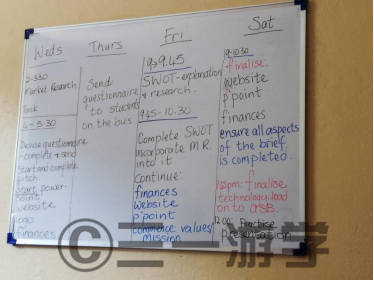 Weds
2-3.30
Market Research
Task
4-5.30
Devise questionnaire
- complete & send
Start and complete
pitch
Start power-
point
website
logo
finances
Thurs
Send
questionnaire
to students
on the bus
Fri
9-9.45
SWOT-explanation
& research.
9.45-10.30
Complete SWOT
Incorporate M.R.
into it
Continue:
finances
website
p'point
commence values/
mission
Sat
9-10.30
finalise:
website
p'point
finances
ensure all aspects
of the brief
is completed.
finalise
technology-load
on to USB.
Practise
Presentation
©三一游学